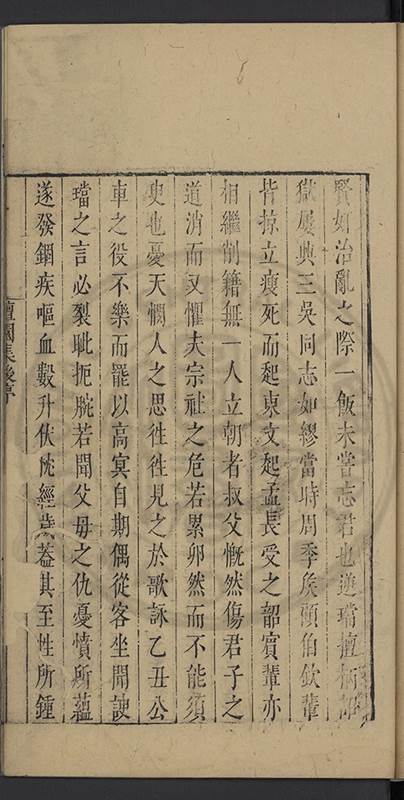 賢如治亂之際一飯未嘗忘君也逆璫擅柄詔
獄屢興三吳同志如繆當時周季矦顧伯欽輩
皆掠立瘐死而起東文起孟長受之韶賓輩亦
相繼削籍無一人立朝者叔父慨然傷君子之
道消而又懼夫宗社之危若累卵然而不能須
臾也憂天憫人之思徃徃見之於歌詠乙丑公
車之役不樂而罷以高㝠自期偶從客坐聞諛
璫之言必裂眦扼腕若聞父母之仇憂憤所蘊
遂發錮疾嘔血數升伏枕經歲葢其至性所鍾
檀園集後序